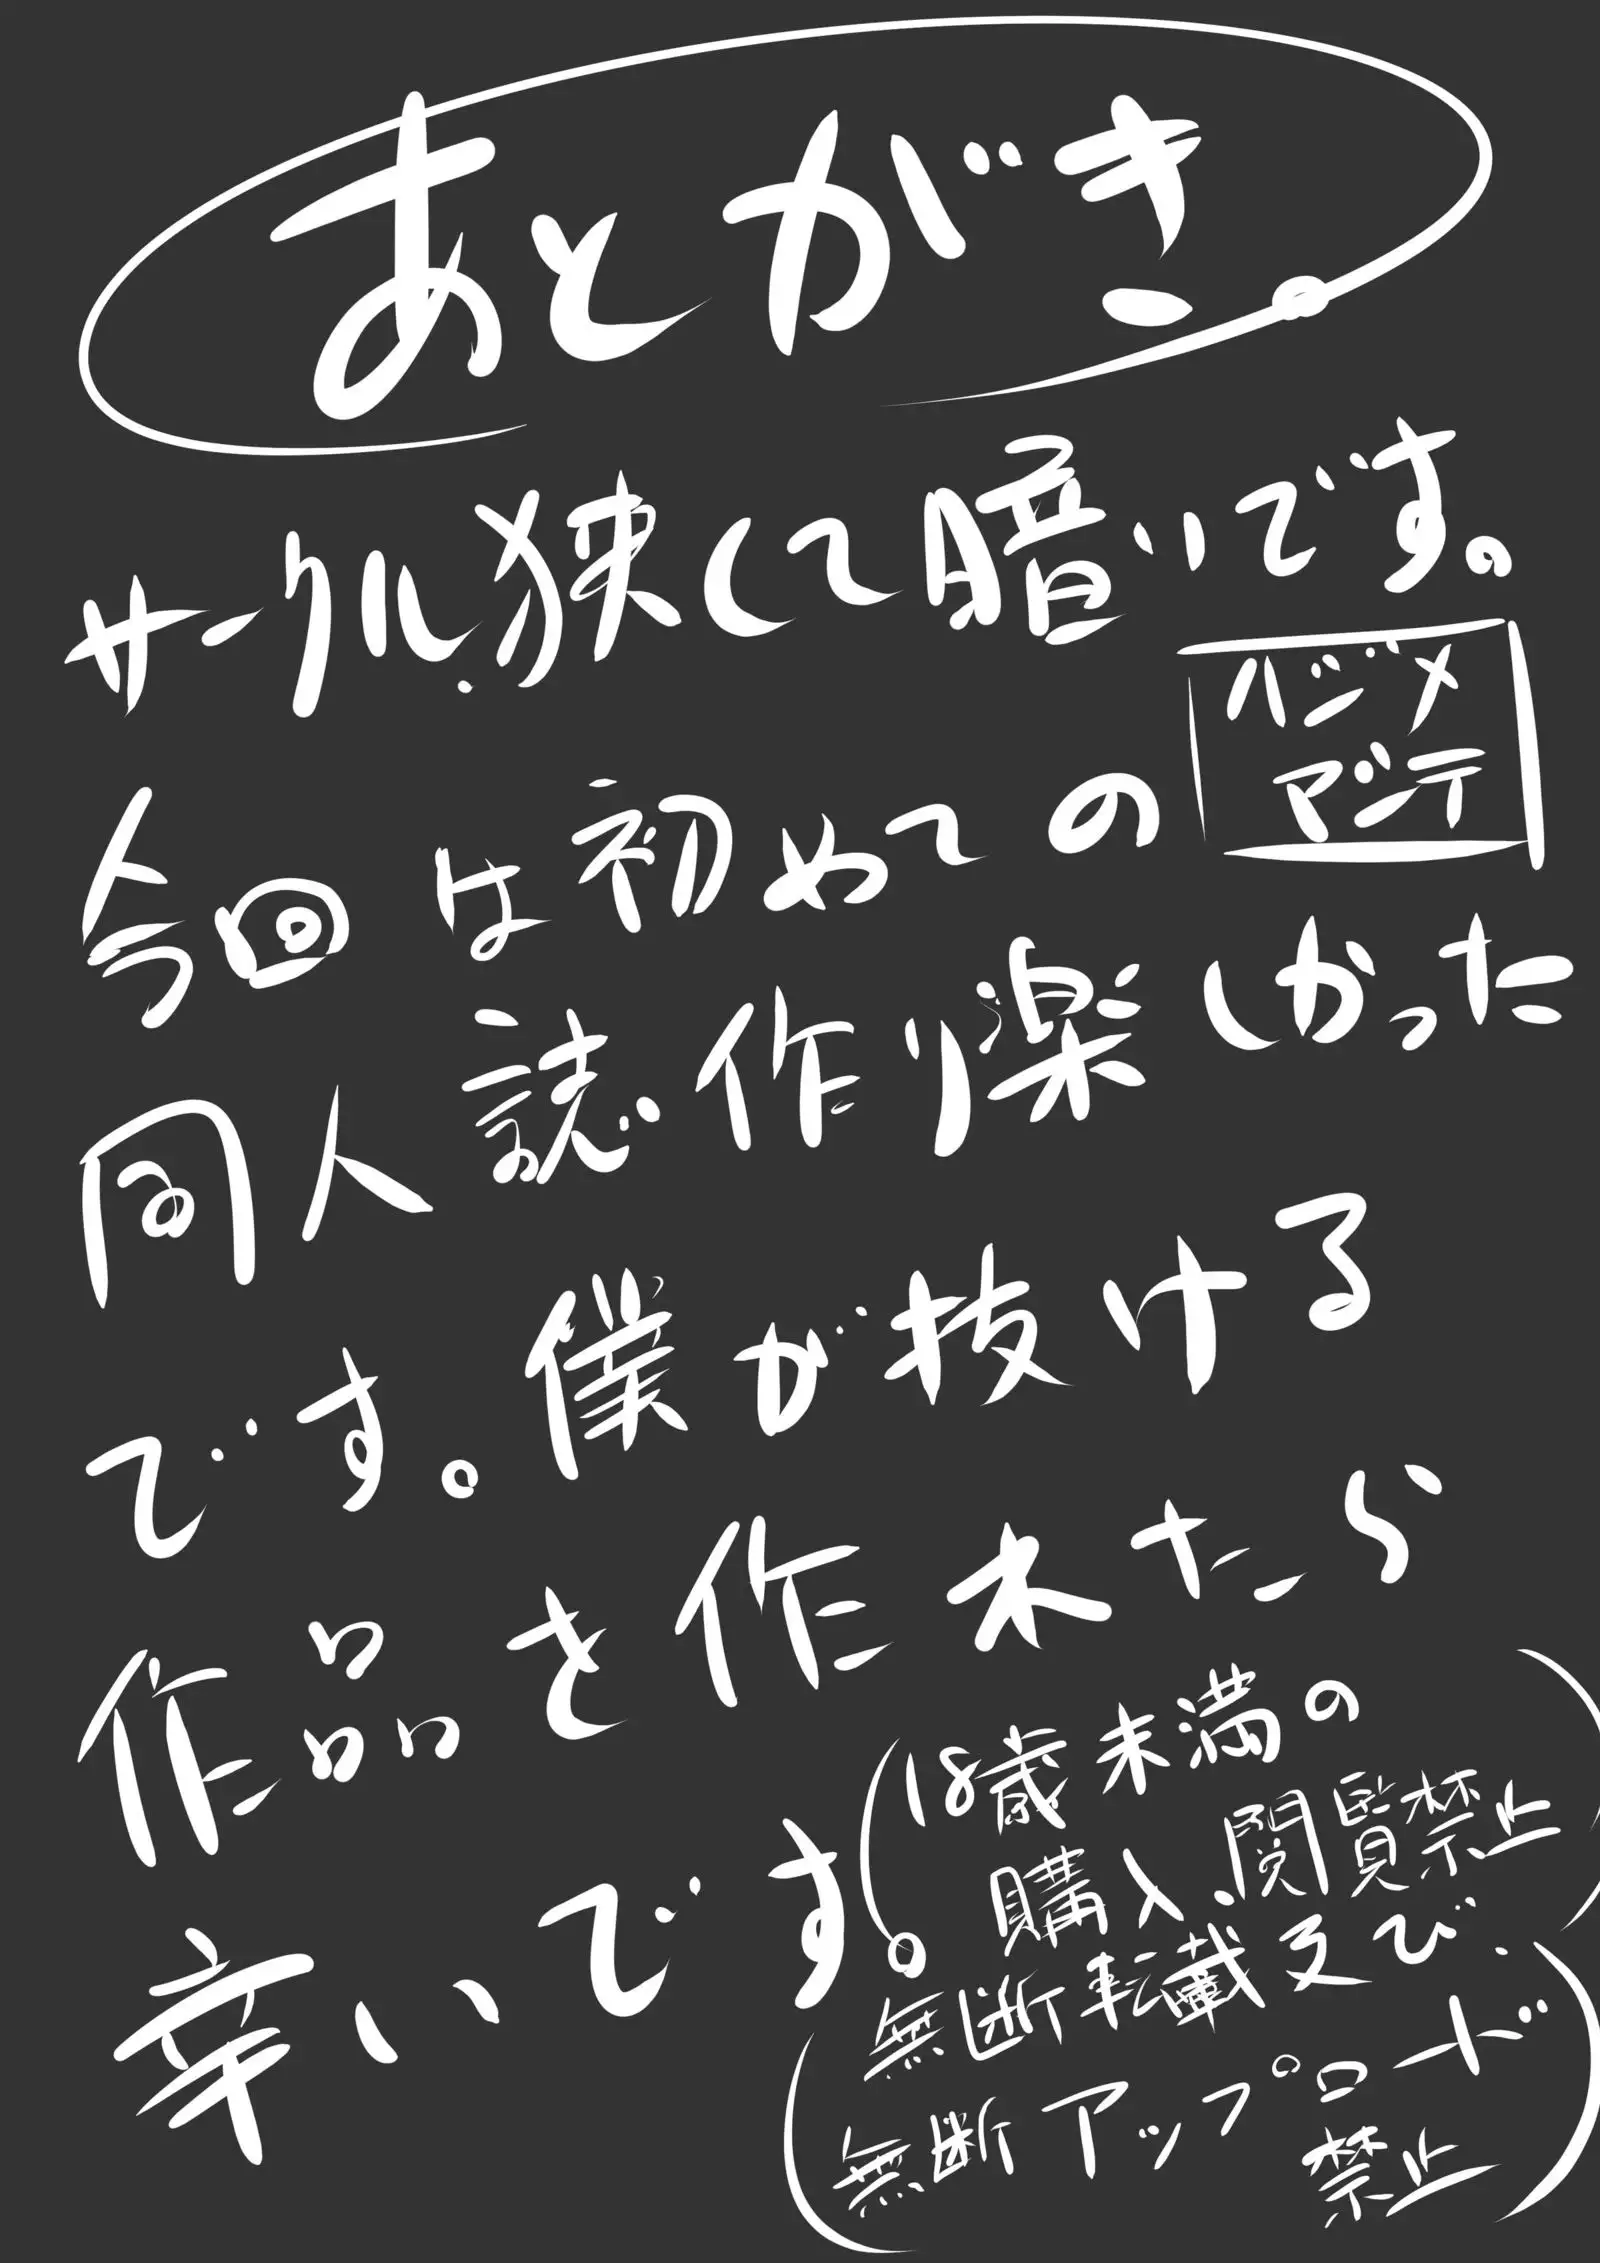 あとがき
サークル狭して暗いです。
今回は初めての
ハジメマシテ
同人誌作り楽しかった
です。僕が抜ける
作品を作れたら
幸いです。
(18歳未満の
購入、閲覧禁止)
(無断転載及び
無断アップロード
禁止)